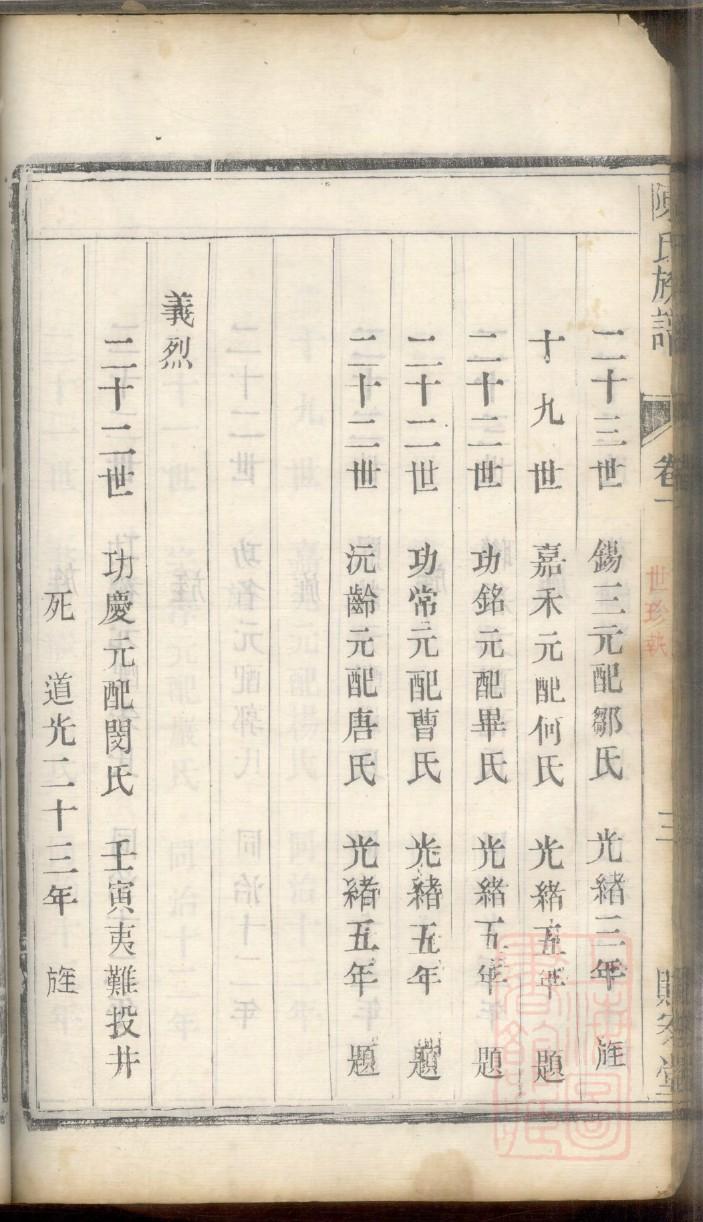 陳氏族譜 卷一 三
世珍執
二十三世 錫三元配鄒氏 光緒三年 旌
十九世 嘉禾元配何氏 光緒五年 題
二十二世 功銘元配畢氏 光緒五年 題
二十二世 功常元配曹氏 光緒五年 題
二十二世 沅齡元配唐氏 光緒五年 題
義烈
二十二世 功慶元配閔氏 壬寅夷難投井
死 道光二十三年 旌